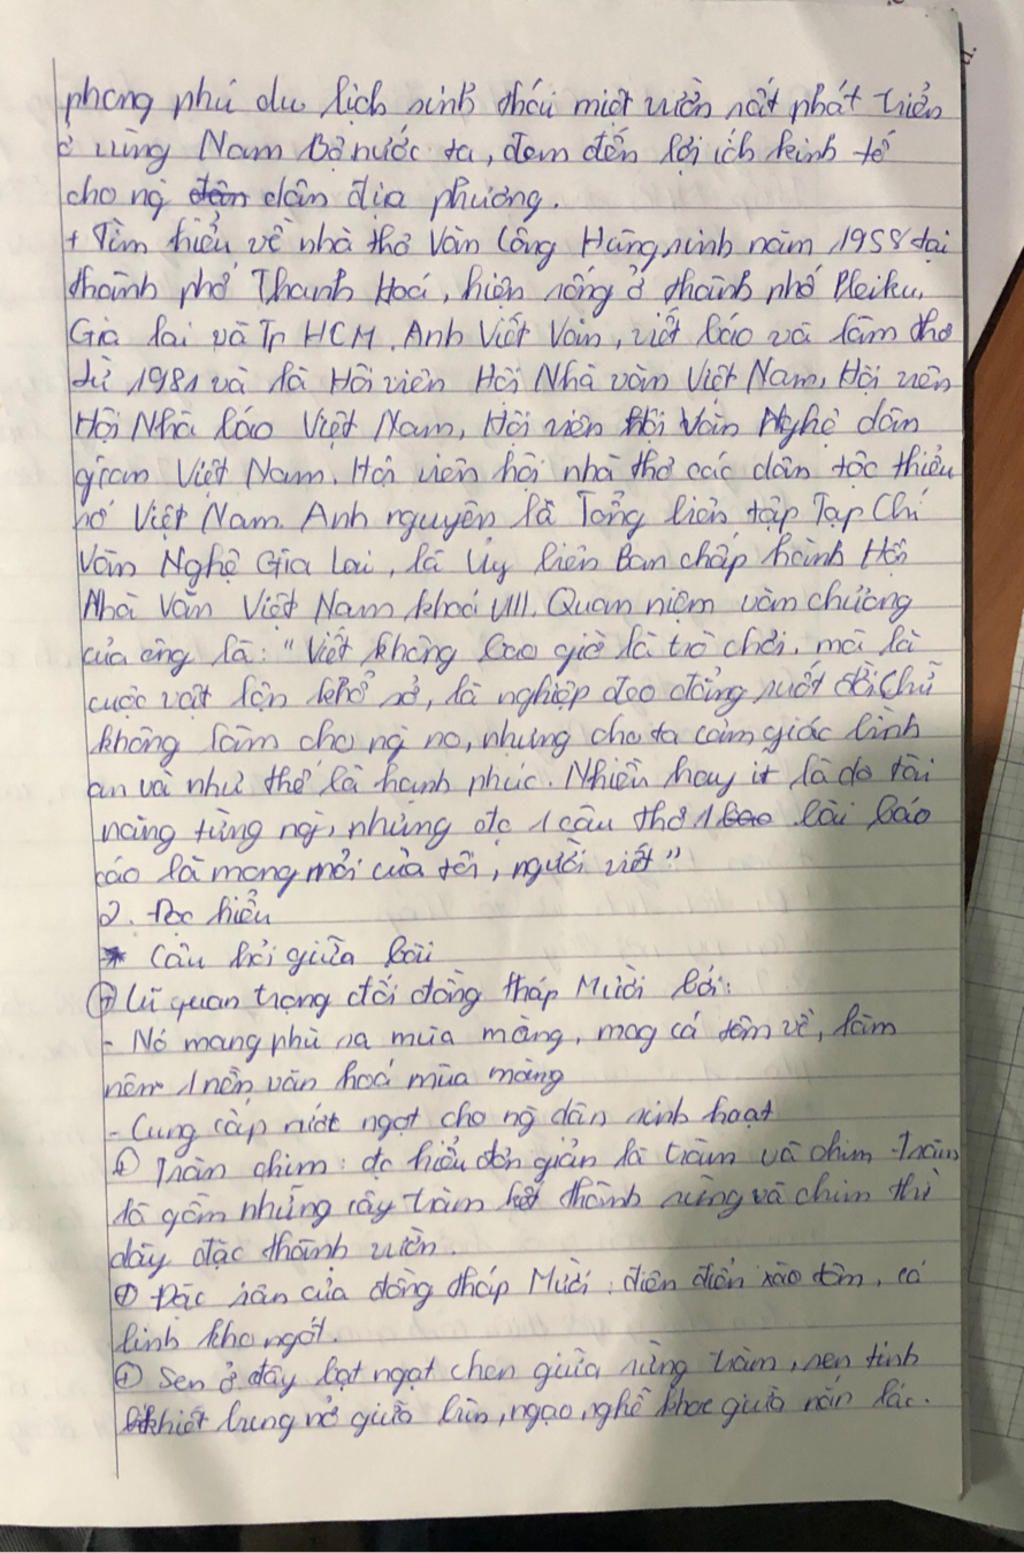 phong phú du lịch sinh thái miệt vườn rất phát triển
ở vùng Nam Bộ nước ta, đem đến lợi ích kinh tế
cho ng̀ dân địa phương.
+ Tìm hiểu về nhà thơ Văn Công Hùng, sinh năm 1958 tại
thành phố Thanh Hoá, hiện sống ở thành phố Pleiku,
Gia Lai và Tp HCM. Anh Viết Văn, viết báo và làm thơ
từ 1981 và là Hội viên Hội Nhà văn Việt Nam, Hội viên
Hội Nhà báo Việt Nam, Hội viên Hội Văn Nghệ dân
gian Việt Nam. Hội viên hội nhà thơ các dân tộc thiểu
số Việt Nam. Anh nguyên là Tổng biên tập Tạp Chí
Văn Nghệ Gia Lai, là Uỷ biên Ban chấp hành Hội
Nhà Văn Việt Nam khoá VIII. Quan niệm văn chương
của ông là: "Viết không bao giờ là trò chơi, mà là
cuộc vật lộn khổ sở, là nghiệp đeo đẳng suốt đời. Chữ
không làm cho ng̀ no, nhưng cho ta cảm giác bình
an và như thế là hạnh phúc. Nhiều hay ít là do tài
năng từng ng̀, nhưng đc 1 câu thơ 1 bài báo
cáo là mong mỏi của tôi, người viết"
2. Đọc hiểu
* Câu hỏi giữa bài
+ Lũ quan trọng đối đồng Tháp Mười bởi:
- Nó mang phù sa mùa màng, mag cá tôm về, làm
nên 1 nền văn hoá mùa màng
- Cung cấp nước ngọt cho ng̀ dân sinh hoạt
+ Tràm chim: đc hiểu đơn giản là tràm và chim. Tràm
là gồm những cây tràm kết thành rừng và chim thì
dày đặc thành vườn.
+ Đặc sản của đồng tháp Mười: điên điển xào tôm, cá
linh kho ngót.
+ Sen ở đây bạt ngạt chen giữa rừng tràm, sen tinh
khiết bung nở giữa bùn, ngạo nghễ khoe giữa năn lác.